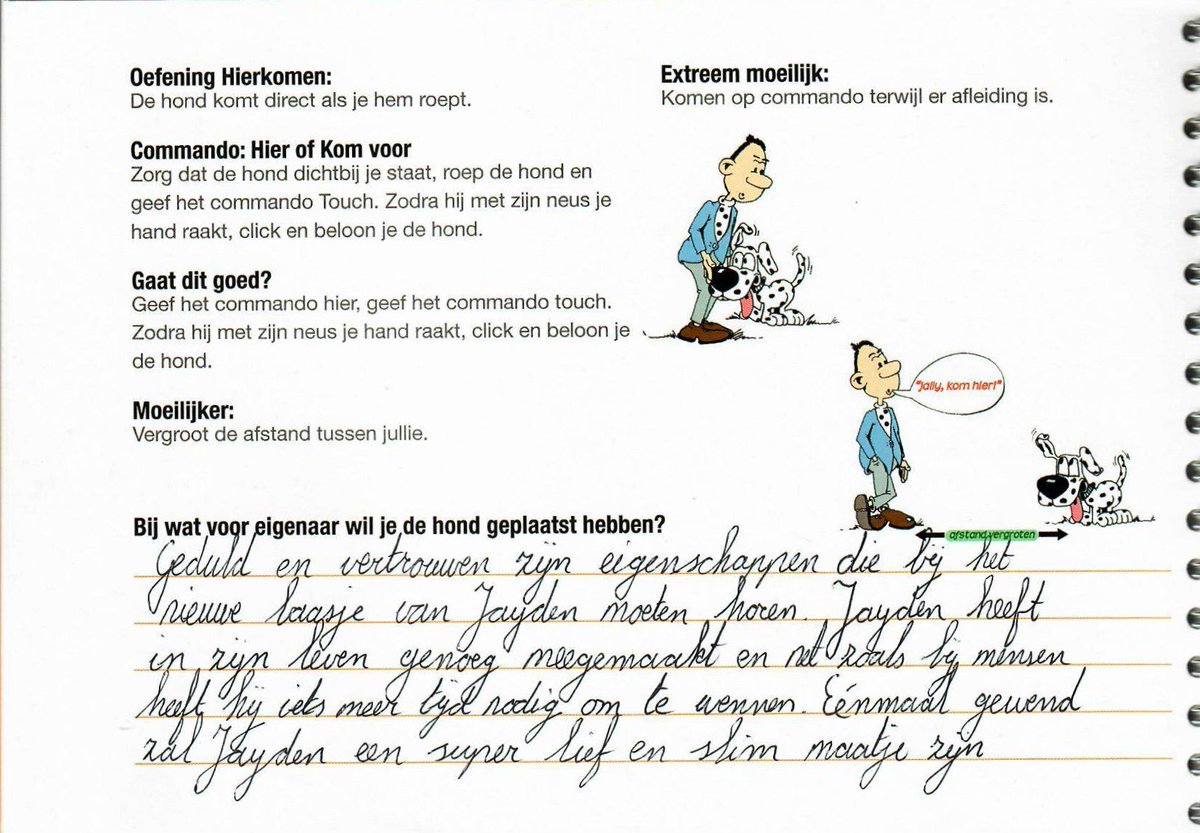 Oefening Hierkomen:
De hond komt direct als je hem roept.
Commando: Hier of Kom voor
Zorg dat de hond dichtbij je staat, roep de hond en
geef het commando Touch. Zodra hij met zijn neus je
hand raakt, click en beloon je de hond.
Gaat dit goed?
Geef het commando hier, geef het commando touch.
Zodra hij met zijn neus je hand raakt, click en beloon je
de hond.
Moeilijker:
Vergroot de afstand tussen jullie.
Extreem moeilijk:
Komen op commando terwijl er afleiding is.
"Jally, kom hier!"
afstand vergroten
Bij wat voor eigenaar wil je de hond geplaatst hebben?
Geduld en vertrouwen zijn eigenschappen die bij het
nieuwe baasje van Jayden moeten horen. Jayden heeft
in zijn leven genoeg meegemaakt en net zoals bij mensen
heeft hij iets meer tijd nodig om te wennen. Eénmaal gewend
zal Jayden een super lief en slim maatje zijn